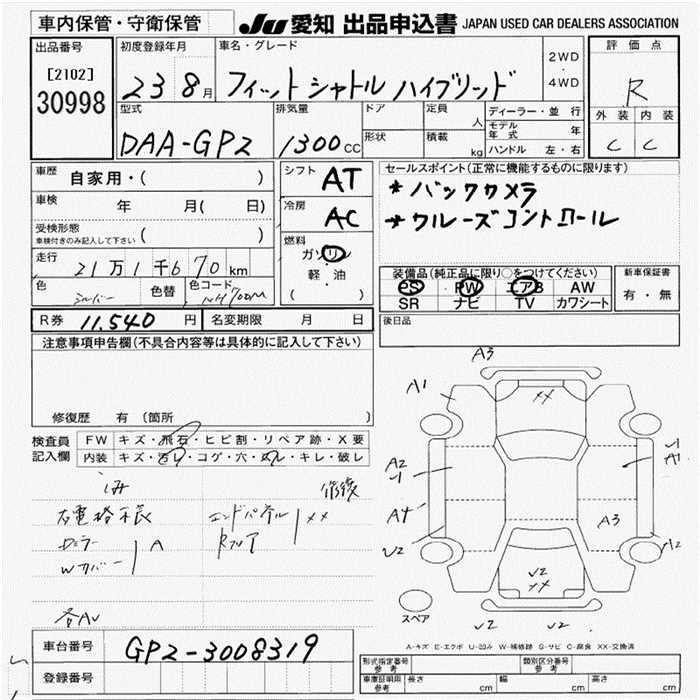 車内保管・守衛保管
JU 愛知 出品申込書 JAPAN USED CAR DEALERS ASSOCIATION
出品番号
[2102]
30998
初度登録年月
23 8月
車名・グレード
フィットシャトル ハイブリッド
2WD
・
4WD
評価点
R
外装 内装
C C
型式
DAA-GP2
排気量
1300cc
ドア
形状
定員
人
積載
kg
ディーラー・並行
モデル年式 年
ハンドル 左・右
車歴 自家用・( )
車検 年 月( 日)
受検形態
車検付きのみ記入して下さい ( )
走行 21万1千670km
色 シルバー
色替
色コード NH700M
シフト AT
冷房 AC
燃料
ガソリン
・
軽油
( )
セールスポイント(正常に機能するものに限ります)
*バックカメラ
*クルーズコントロール
装備品(純正品に限り○をつけてください)
PS PW エアB AW
SR ナビ TV カワシート
新車保証書
有・無
R券 11,540円
名変期限 月 日
後日品
注意事項申告欄(不具合内容等は具体的に記入して下さい)
修復歴 有 (箇所 )
検査員記入欄
FW キズ・飛石・ヒビ割・リペア跡・X要
内装 キズ・汚レ・コゲ・穴・ヌレ・キレ・破レ
A
エンドパネル XX
Rフロア
各AU
A3
A1
XX
A2
A1
A3
A2
U2
U2
XX
U2 U2
スペア
A-キズ E-エクボ U-凹み W-補修跡 S-サビ C-腐食 XX-交換済
車台番号 GP2-3008319
登録番号
形式指定番号 参考
類別区分番号 参考
車庫証明用 参考
長さ cm
幅 cm
高さ cm